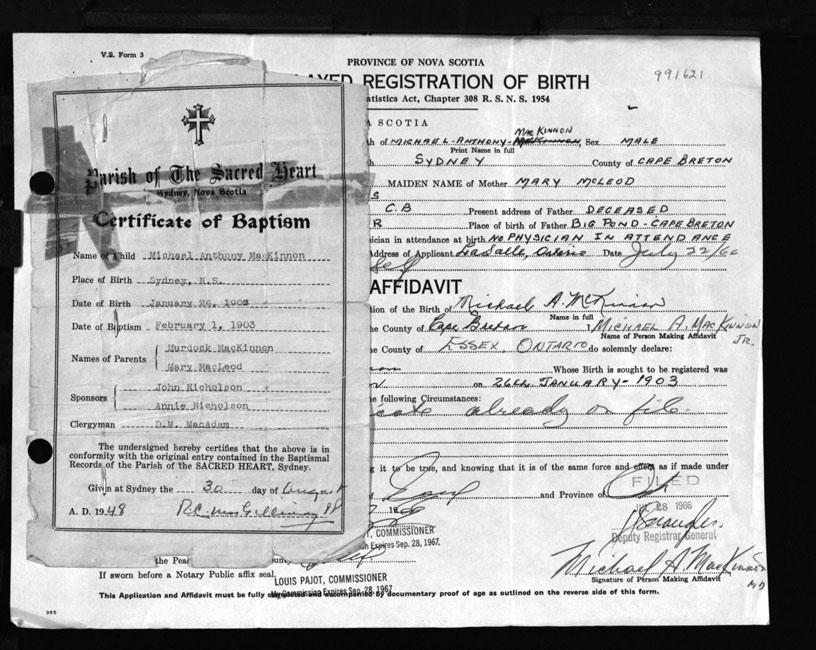 V.S. Form 3
PROVINCE OF NOVA SCOTIA
AYED REGISTRATION OF BIRTH
991621
atistics Act, Chapter 308 R. S. N. S. 1954
A SCOTIA
MACKINNON
th of MICHAEL-ANTHONY- Sex MALE
Print Name in full
SYDNEY County of CAPE BRETON
MAIDEN NAME of Mother MARY McLEOD
S
C.B Present address of Father DECEASED
R Place of birth of Father BIG POND-CAPE BRETON
ician in attendance at birth NO PHYSICIAN IN ATTENDANCE
Address of Applicant LaSalle, Ontario Date July 22/66
Self
AFFIDAVIT
tion of the Birth of Michael A. McKinnon
Name in full
he County of Cape Breton I MICHAEL A. MACKINNON JR.
Name of Person Making Affidavit
he County of ESSEX, ONTARIO do solemnly declare:
Whose Birth is sought to be registered was
on 26th JANUARY-1903
he following Circumstances:
already on file.
g it to be true, and knowing that it is of the same force and effect as if made under
and Province of Ont
FILED
28 1966
Deputy Registrar General
T, COMMISSIONER
n Expires Sep. 28, 1967.
the Pear
If sworn before a Notary Public affix seal.
LOUIS PAJOT, COMMISSIONER
My Commission Expires Sep. 28, 1967
Michael A. MacKinnon
Signature of Person Making Affidavit
This Application and Affidavit must be fully completed and accompanied by documentary proof of age as outlined on the reverse side of this form.
Parish of The Sacred Heart
Sydney, Nova Scotia
Certificate of Baptism
Name of Child Michael Anthony MacKinnon
Place of Birth Sydney, N.S.
Date of Birth January 26, 1903
Date of Baptism February 1, 1903
Names of Parents
Murdock MacKinnon
Mary MacLeod
Sponsors
John Nicholson
Annie Nicholson
Clergyman D.M. MacAdam
The undersigned hereby certifies that the above is in
conformity with the original entry contained in the Baptismal
Records of the Parish of the SACRED HEART, Sydney.
Given at Sydney the 30 day of August
A. D. 1948